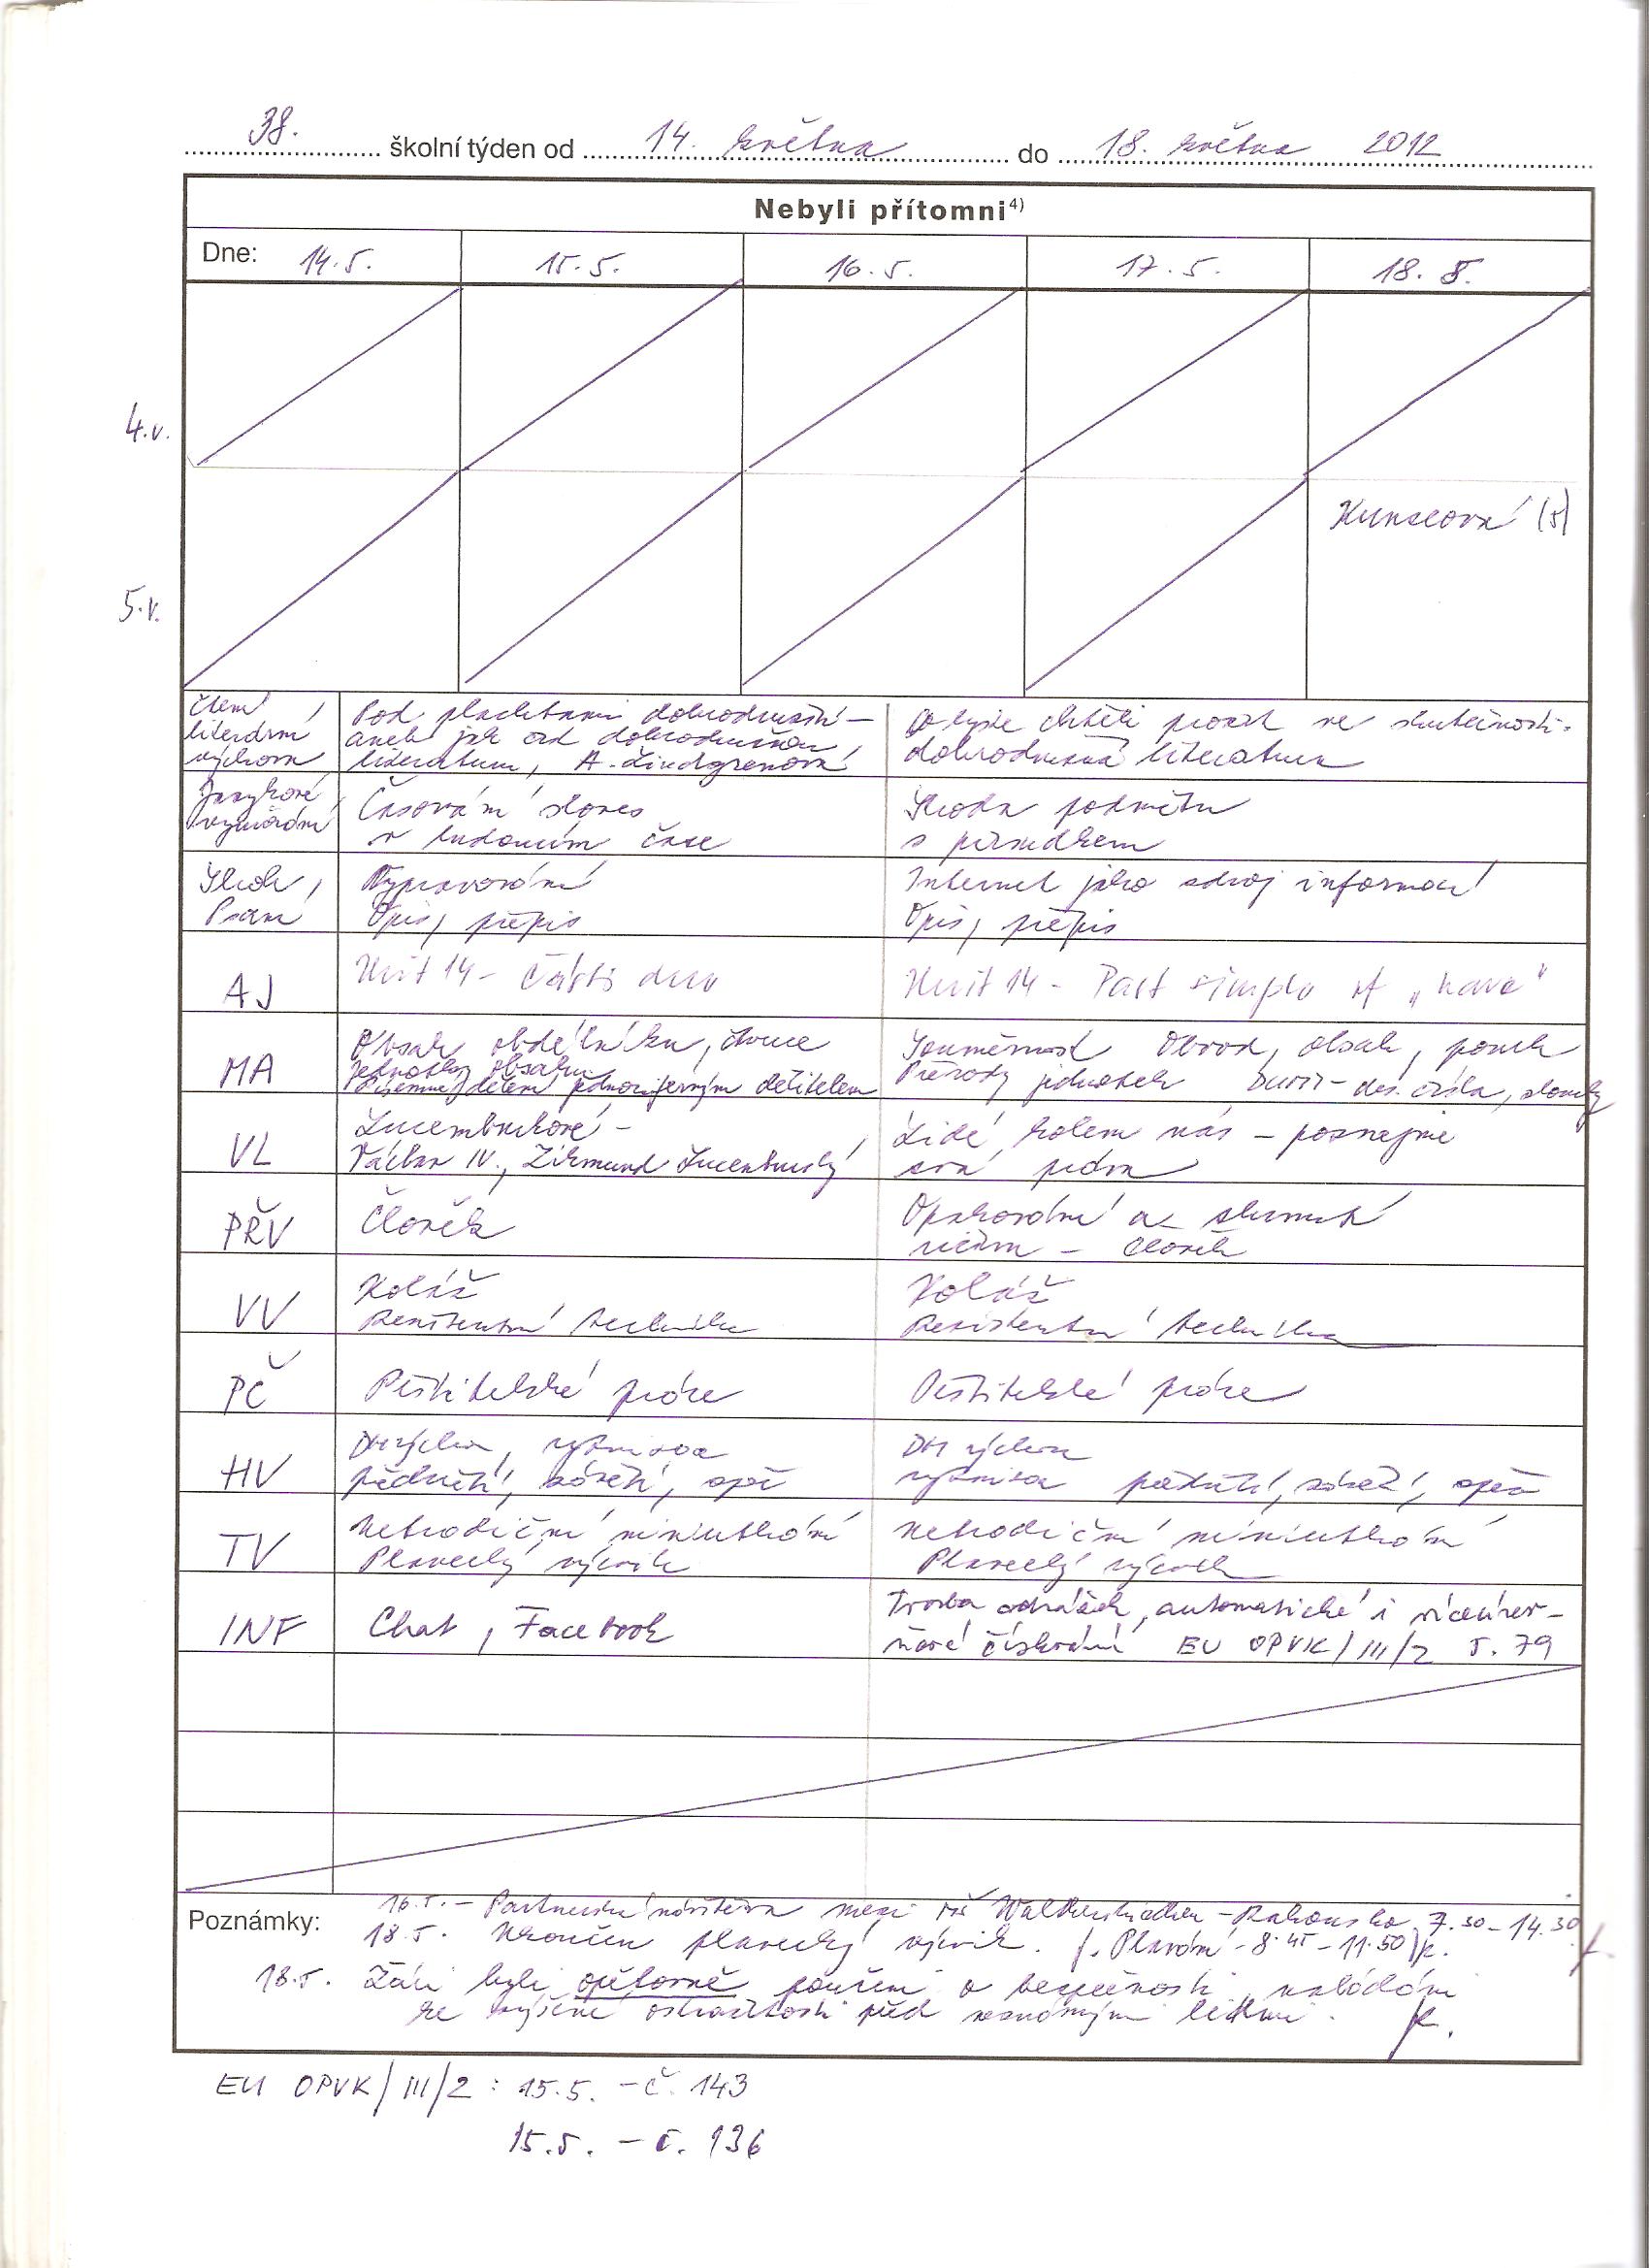 38. školní týden od 14. května do 18. května 2012
Nebyli přítomni4)
Dne: 14.5. 15.5. 16.5. 17.5. 18.5.
4.v.
Kunclová (5)
5.v.
Čtení, Pod plachtami dobrodružství – Co byste chtěli prožít ve skutečnosti-
literární aneb jak číst dobrodružnou dobrodružná literatura
výchova literaturu, A. Lindgrenová
Jazykové Časování sloves Shoda podmětu
vyučování v budoucím čase s přísudkem
Sloh, Vypravování Internet jako zdroj informací
Psaní Opis, přepis Opis, přepis
AJ Unit 14 - Části dne Unit 14 - Past simple of "have"
MA Obsah obdélníku, čtverce Souměrnost Obvod, obsah, povrch
Jednotky obsahu Převody jednotek des. čísla, zlomky
Písemné dělení jednociferným dělitelem
VL Lucemburkové - Lidé kolem nás - poznejme
Václav IV., Zikmund Lucemburský svá práva
PŘV Člověk Opakování a shrnutí
učiva - člověk
VV Koláž Koláž
Rezistentní technika Rezistentní technika
PČ Pěstitelské práce Pěstitelské práce
HV rytmizace
předvětí, závětí, opera rytmizace předvětí, závětí, opera
TV Netradiční Netradiční
Plavecký výcvik Plavecký výcvik
INF Chat, Facebook Tvorba odrážek, automatické i víceúrov-
ňové číslování EU OPVK/III/2 5. 79
Poznámky: 16.5. - Partnerská návštěva mezi ZŠ - Rakousko 7.30 - 14.30
18.5. Ukončen plavecký výcvik. (Plavání - 8.45 - 11.50)
18.5. Žáci byli opětovně poučeni o bezpečnosti, nabádáni
ke zvýšené ostražitosti před neznámými lidmi.
EU OPVK/III/2 : 15.5. - č. 143
15.5. - č. 136